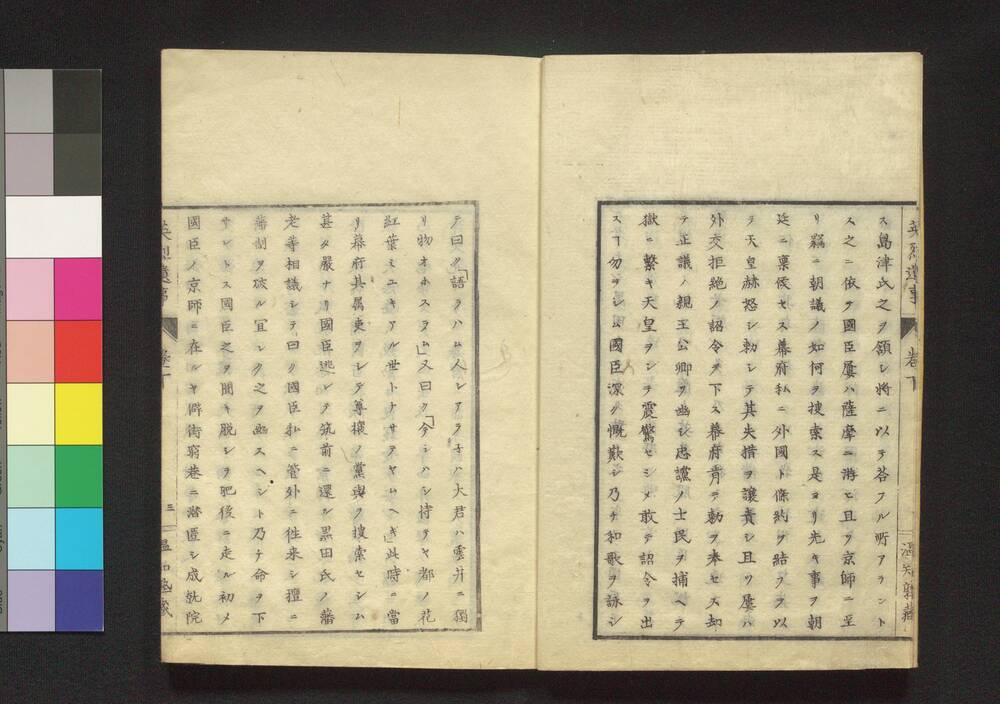 英烈遺事
卷下
溫知塾藏
ス島津氏之ヲ頷シ將ニ以テ荅フル所アラント
ス之ニ依テ國臣屢ハ薩摩ニ游ヒ且ツ京師ニ至
リ竊ニ朝議ノ如何ヲ捜索ス是ヨリ先キ事ヲ朝
廷ニ稟候セス幕府私ニ外國ト條約ヲ結フヲ以
テ天皇赫怒シ勅シテ其失措ヲ讓責シ且ツ屢ハ
外交拒絶ノ詔令ヲ下ス幕府肯テ勅ヲ奉セス却
テ正議ノ親王公卿ヲ幽シ忠讜ノ士民ヲ捕ヘテ
獄ニ繫キ天皇ヲシテ震驚セシメ敢テ詔令ヲ出
スヿ勿ラシム國臣深ク慨歎シ乃チ和歌ヲ詠シ
テ曰ク「語ラハム人シアラ子ハ大君ハ雲井ニ獨
リ物オホスラム」又曰ク「今シハシ待テヤ都ノ花
紅葉ミユキアル世トナサテヤムヘキ」此時ニ當
リ幕府其属吏ヲシテ尊攘ノ黨與ヲ捜索セシム
甚タ嚴ナリ國臣逃レテ筑前ニ還ル黒田氏ノ藩
老等相議シテ曰ク國臣私ニ管外ニ往来シ擅ニ
藩制ヲ破ル宜シク之ヲ幽スヘシト乃チ命ヲ下
サントス國臣之ヲ聞キ脱シテ肥後ニ走ル初メ
國臣ノ京師ニ在ルヤ僻街窮巷ニ潜匿シ成就院
英烈遺事
卷下
三
溫知塾藏